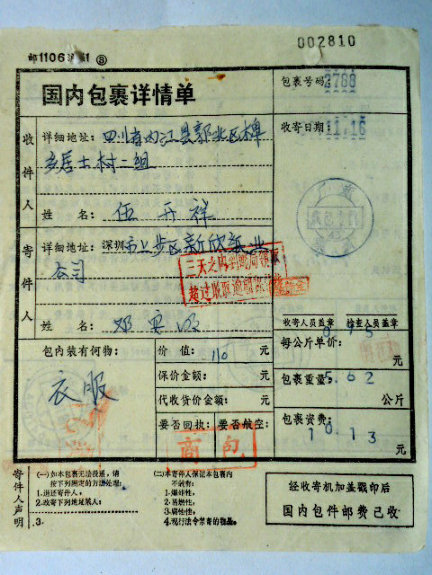 002810
邮1106
国内包裹详情单
包裹号码 3788
收寄日期: 11.16
收件人
详细地址: 四川省内江县郭北区椑
多居士村二组
姓名: 伍开祥
寄件人
详细地址: 深圳市上步区新欣纸业
公司
三天之内到邮局领取
姓名: 邓
收寄人员盖章 检查人员盖章
包内装有何物:
衣服
价值: 110 元
保价金额: 元
代收货价金额: 元
要否回执: 要否航空:
每公斤单价: 元
包裹重量: 5.62 公斤
包裹资费: 10.13 元
商包
寄件人声明
(一)如本包裹无法投递,请
按下列固定的方法处理:
1.退还寄件人:
2.改寄下列地址某人:
3.
(二)本寄件人保证本包裹内
不装有:
1.爆炸性,
2.易燃性,
3.腐蚀性,
4.现行法令禁寄的物品。
经收寄机加盖戳印后
国内包件邮费已收